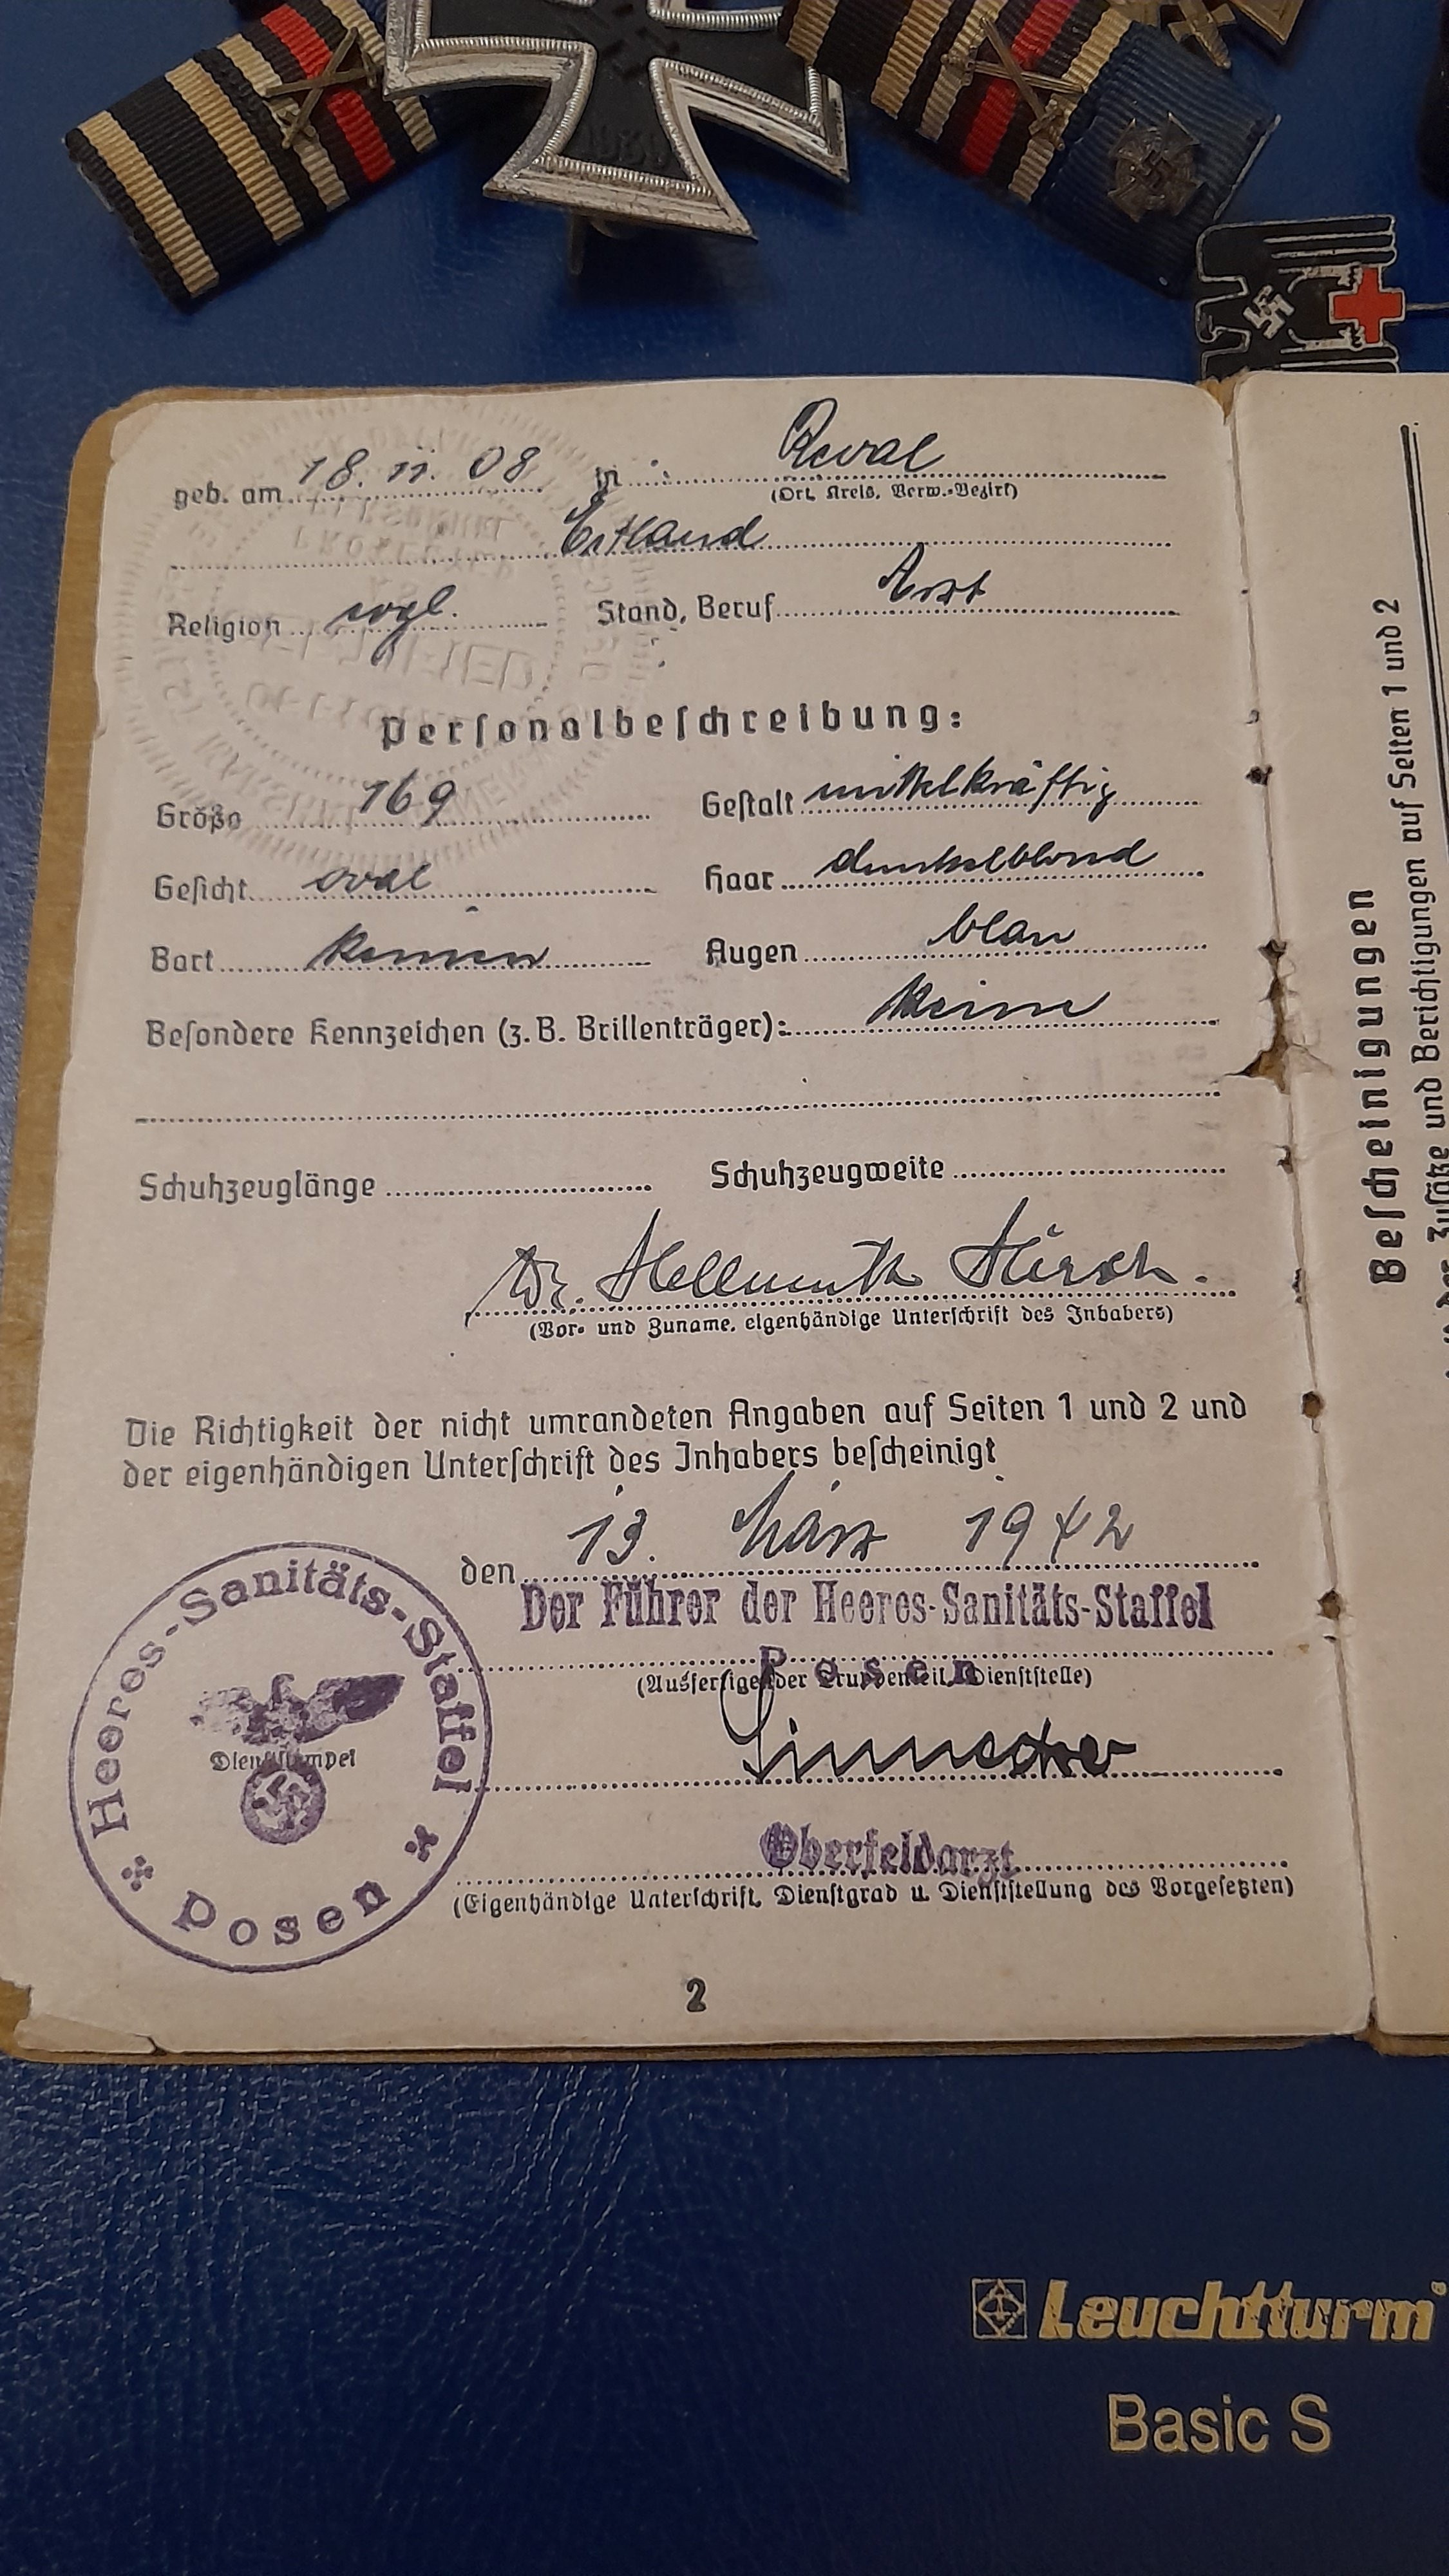 geb. am 18. 11. 08 in Reval
(Ort, Kreis, Verw.-Bezirk)
Estland
Religion evgl. Stand, Beruf Arzt
Personalbeschreibung:
Größe 169 Gestalt mittelkräftig
Gesicht oval Haar dunkelblond
Bart keinen Augen blau
Besondere Kennzeichen (z. B. Brillenträger): keine
Schuhzeuglänge Schuhzeugweite
Dr. Hellmuth Hirsch.
(Vor- und Zuname, eigenhändige Unterschrift des Inhabers)
Die Richtigkeit der nicht umrandeten Angaben auf Seiten 1 und 2 und
der eigenhändigen Unterschrift des Inhabers bescheinigt
den 13. März 1942
Der Führer der Heeres-Sanitäts-Staffel
Posen
(Ausfertigender Truppenteil, Dienststelle)
Oberfeldarzt
(Eigenhändige Unterschrift, Dienstgrad u. Dienststellung des Vorgesetzten)
Heeres-Sanitäts-Staffel
Dienststempel
Posen
2
Bescheinigungen
Zusätze und Berichtigungen auf Seiten 1 und 2
Leuchtturm
Basic S